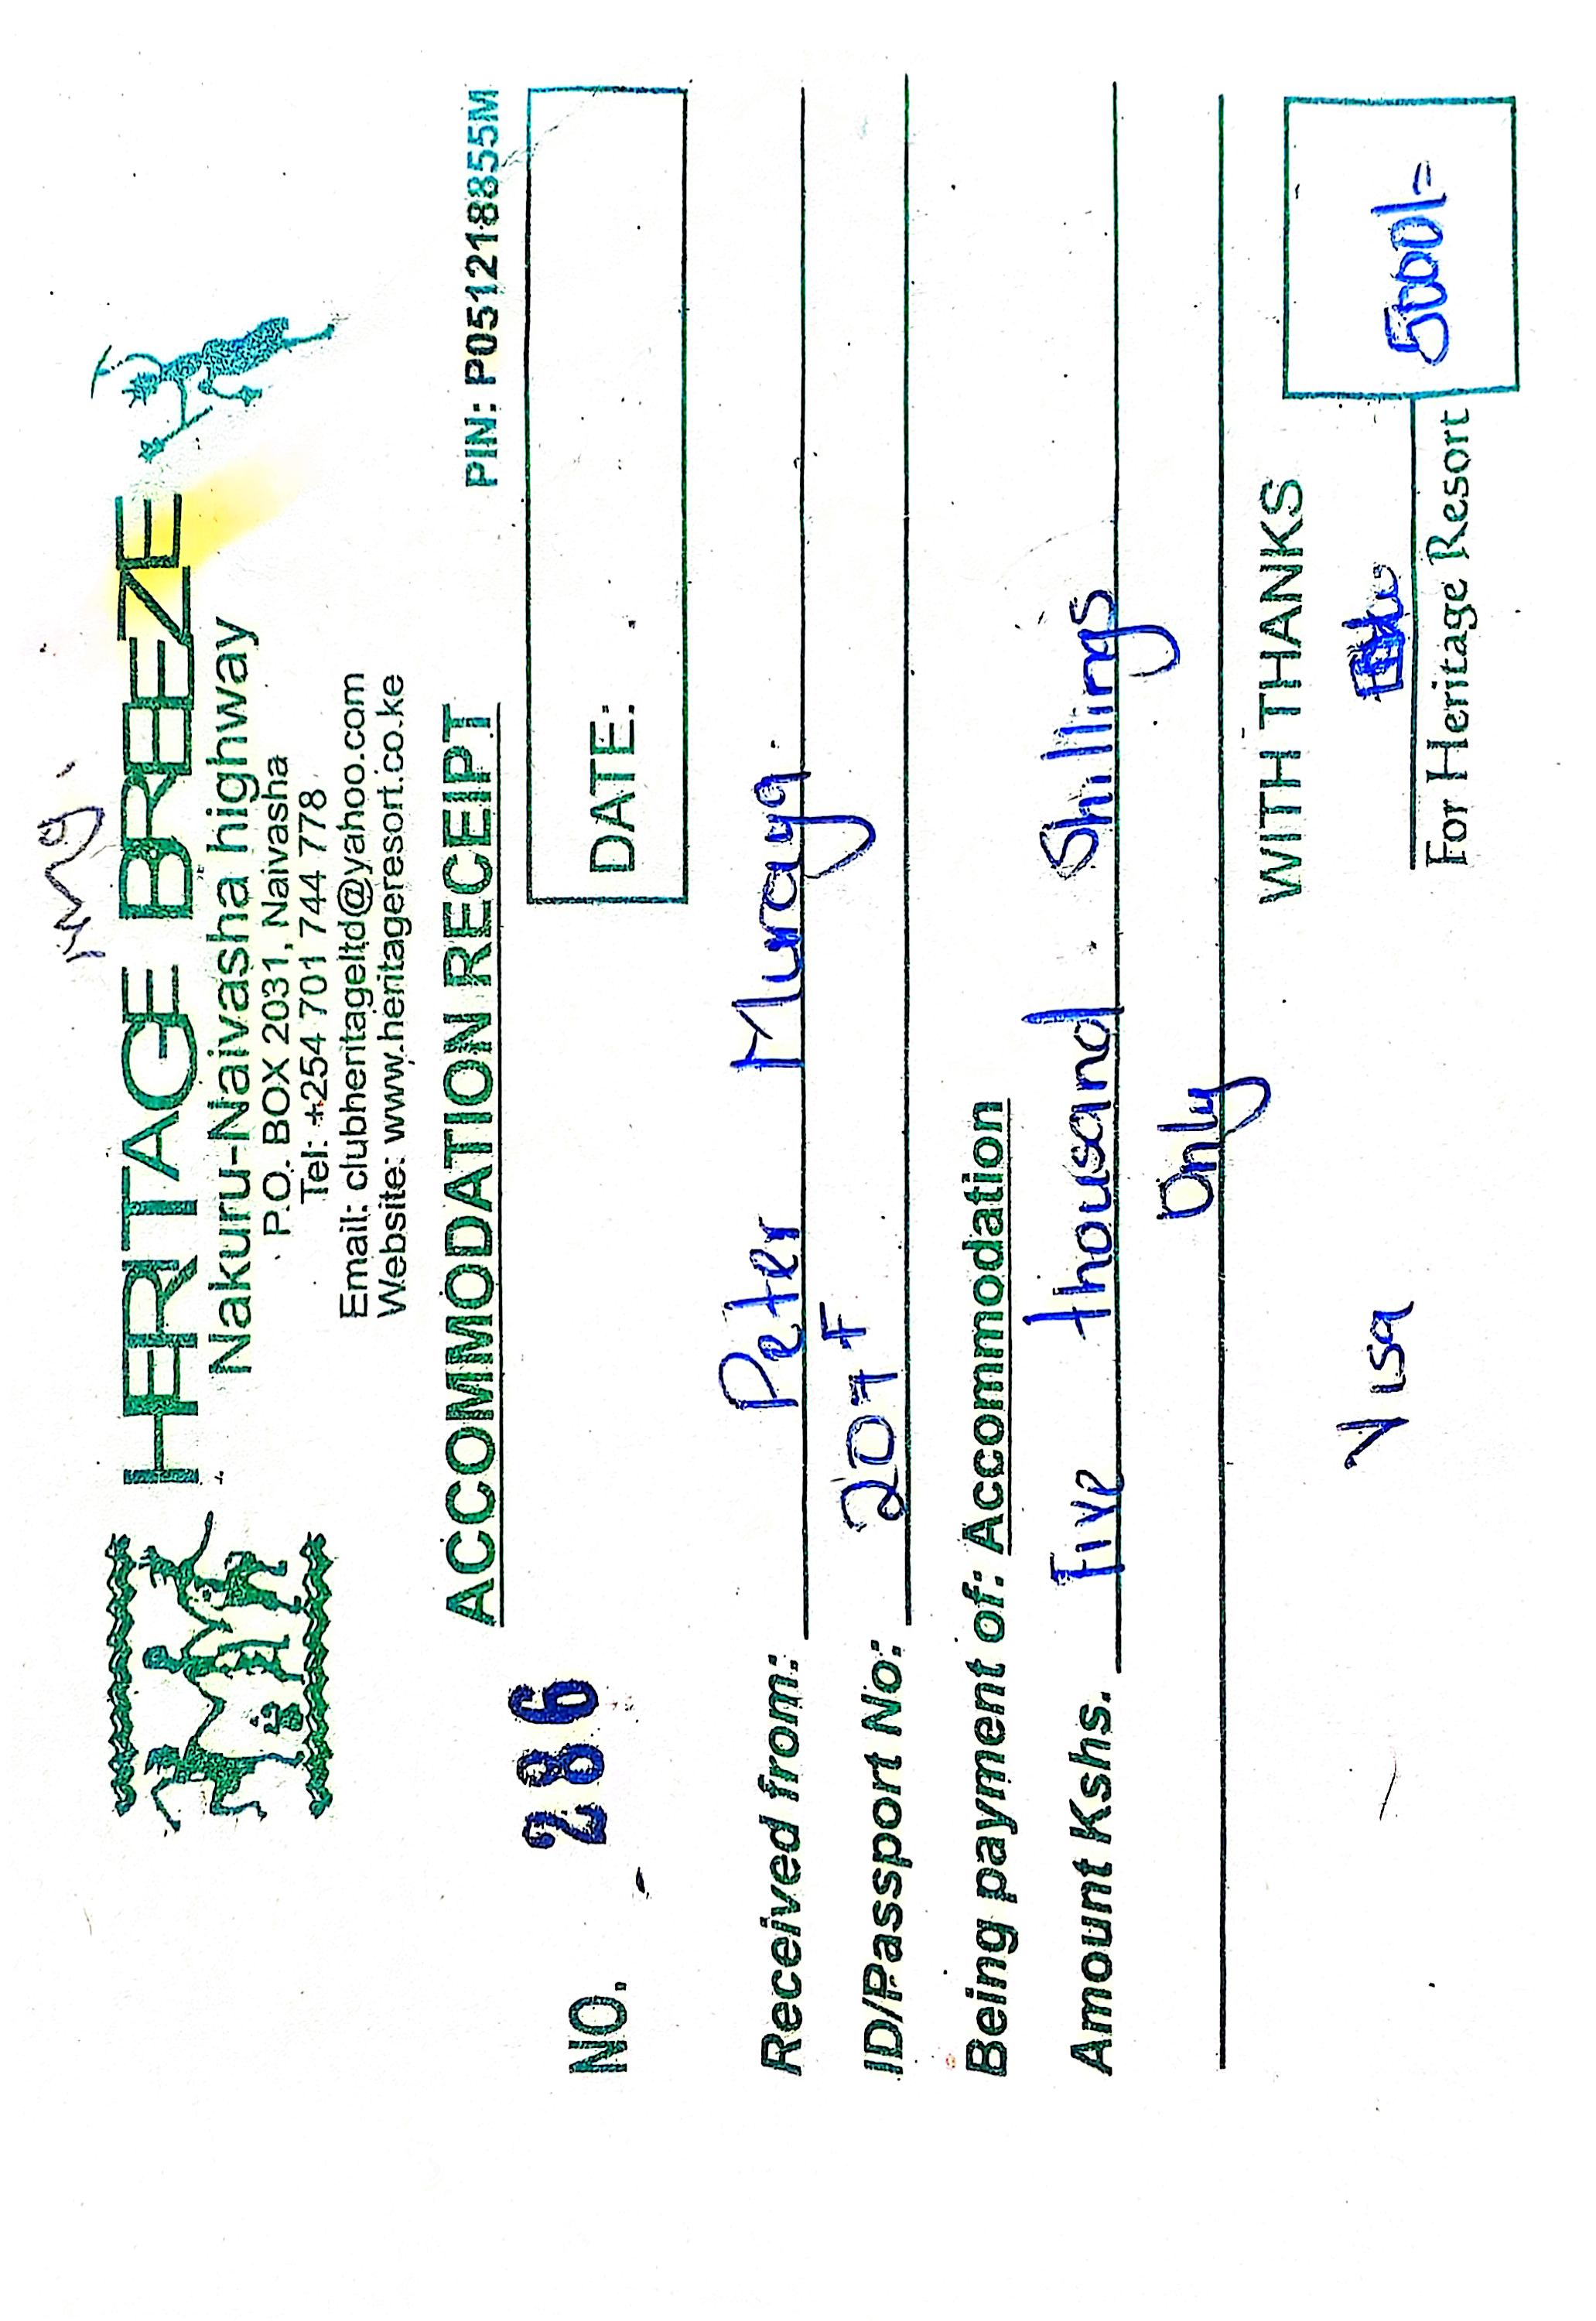 HERITAGE BREEZE
Nakuru-Naivasha highway
P.O. BOX 2031, Naivasha
Tel: +254 701 744 778
Email: clubheritageltd@yahoo.com
Website: www.heritageresort.co.ke
ACCOMMODATION RECEIPT
PIN: P051218855M
NO. 286
DATE:
Received from: Peter Muraya
ID/Passport No: 207 F
Being payment of: Accommodation
Amount Kshs. Five thousand Shillings
Only
WITH THANKS
Visa
5000/=
For Heritage Resort